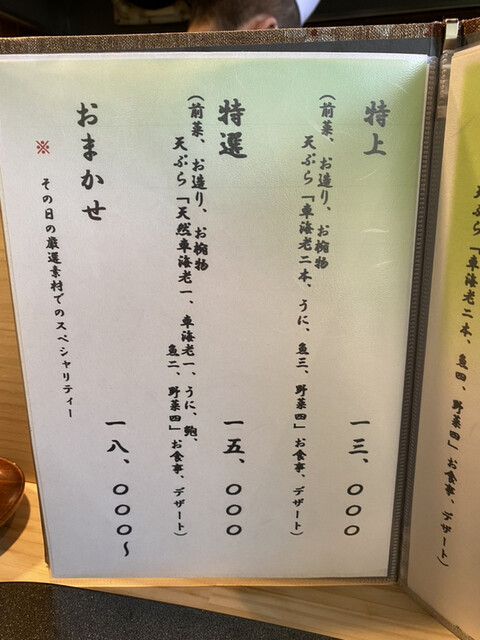 天ぷら「車海老二本、魚四、野菜四」お食事、デザート)
特上
一三、〇〇〇
(前菜、お造り、お椀物
天ぷら「車海老二本、うに、魚三、野菜四」お食事、デザート)
特選
一五、〇〇〇
(前菜、お造り、お椀物
天ぷら「天然車海老一、車海老一、うに、鮑、
魚二、野菜四」お食事、デザート)
おまかせ
一八、〇〇〇〜
※ その日の厳選素材でのスペシャリティー